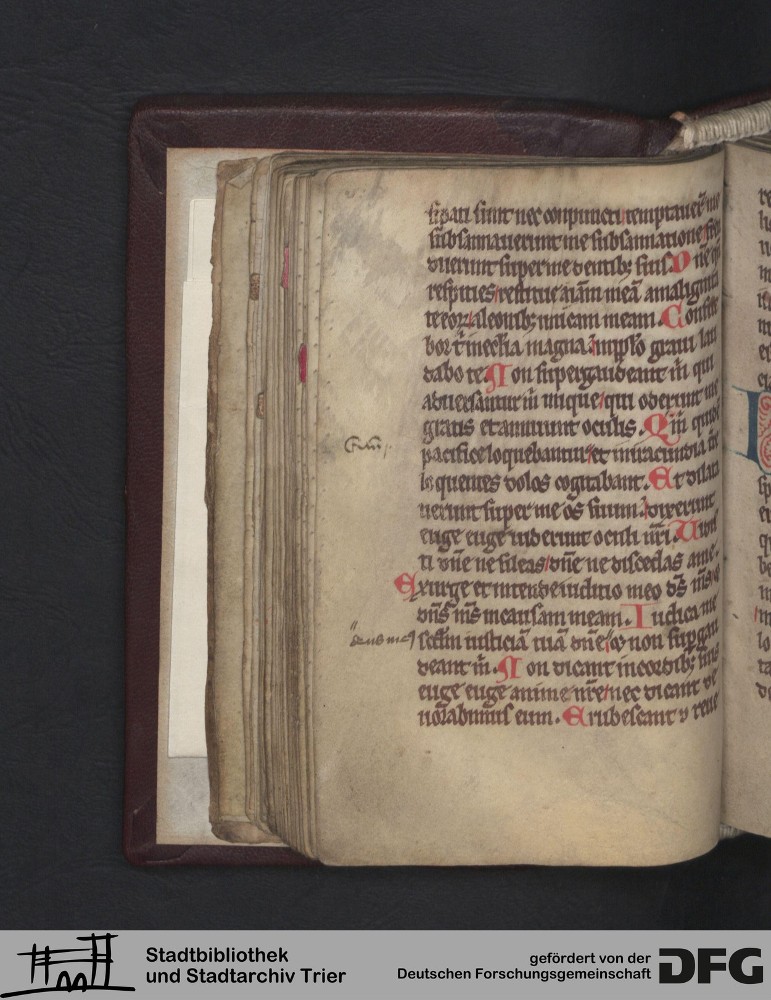 sipati sunt nec conpuncti temptauer̄ me
subsannauerunt me subsannatione fren
duerunt super me dentib; suis. Dn̄e q̄n
respities restitue aīam meā a malignita
te eoꝝ aleonib; unicam meam. Confite
bor t̄ in ecc̄lia magna: in pp̄lo graui lau
dabo te. Non supergaudeant m̄ qui
aduersantur m̄ inique qui oderunt me
gratis et annuunt oculis. Qm̄ quidē
pacifice loquebantur et in iracundia t̄re
loquentes dolos cogitabant. Et dilata
uerunt super me os suum: dixerunt
euge euge uiderunt oculi nr̄i. Uidis
ti dn̄e ne sileas dn̄e ne discedas a me.
Exurge et intende iudicio meo ds̄ ms̄ et
dn̄s ms̄ in causam meam. Iudica me
deus me9
scd̄m iusticiā tuā dn̄e et non sup̄gau
deant m̄. Non dicant in cordib; suis
euge euge anime nr̄e nec dicant de
uorabimus eum. Erubescant et reue
Stadtbibliothek
und Stadtarchiv Trier
gefördert von der
Deutschen Forschungsgemeinschaft
DFG